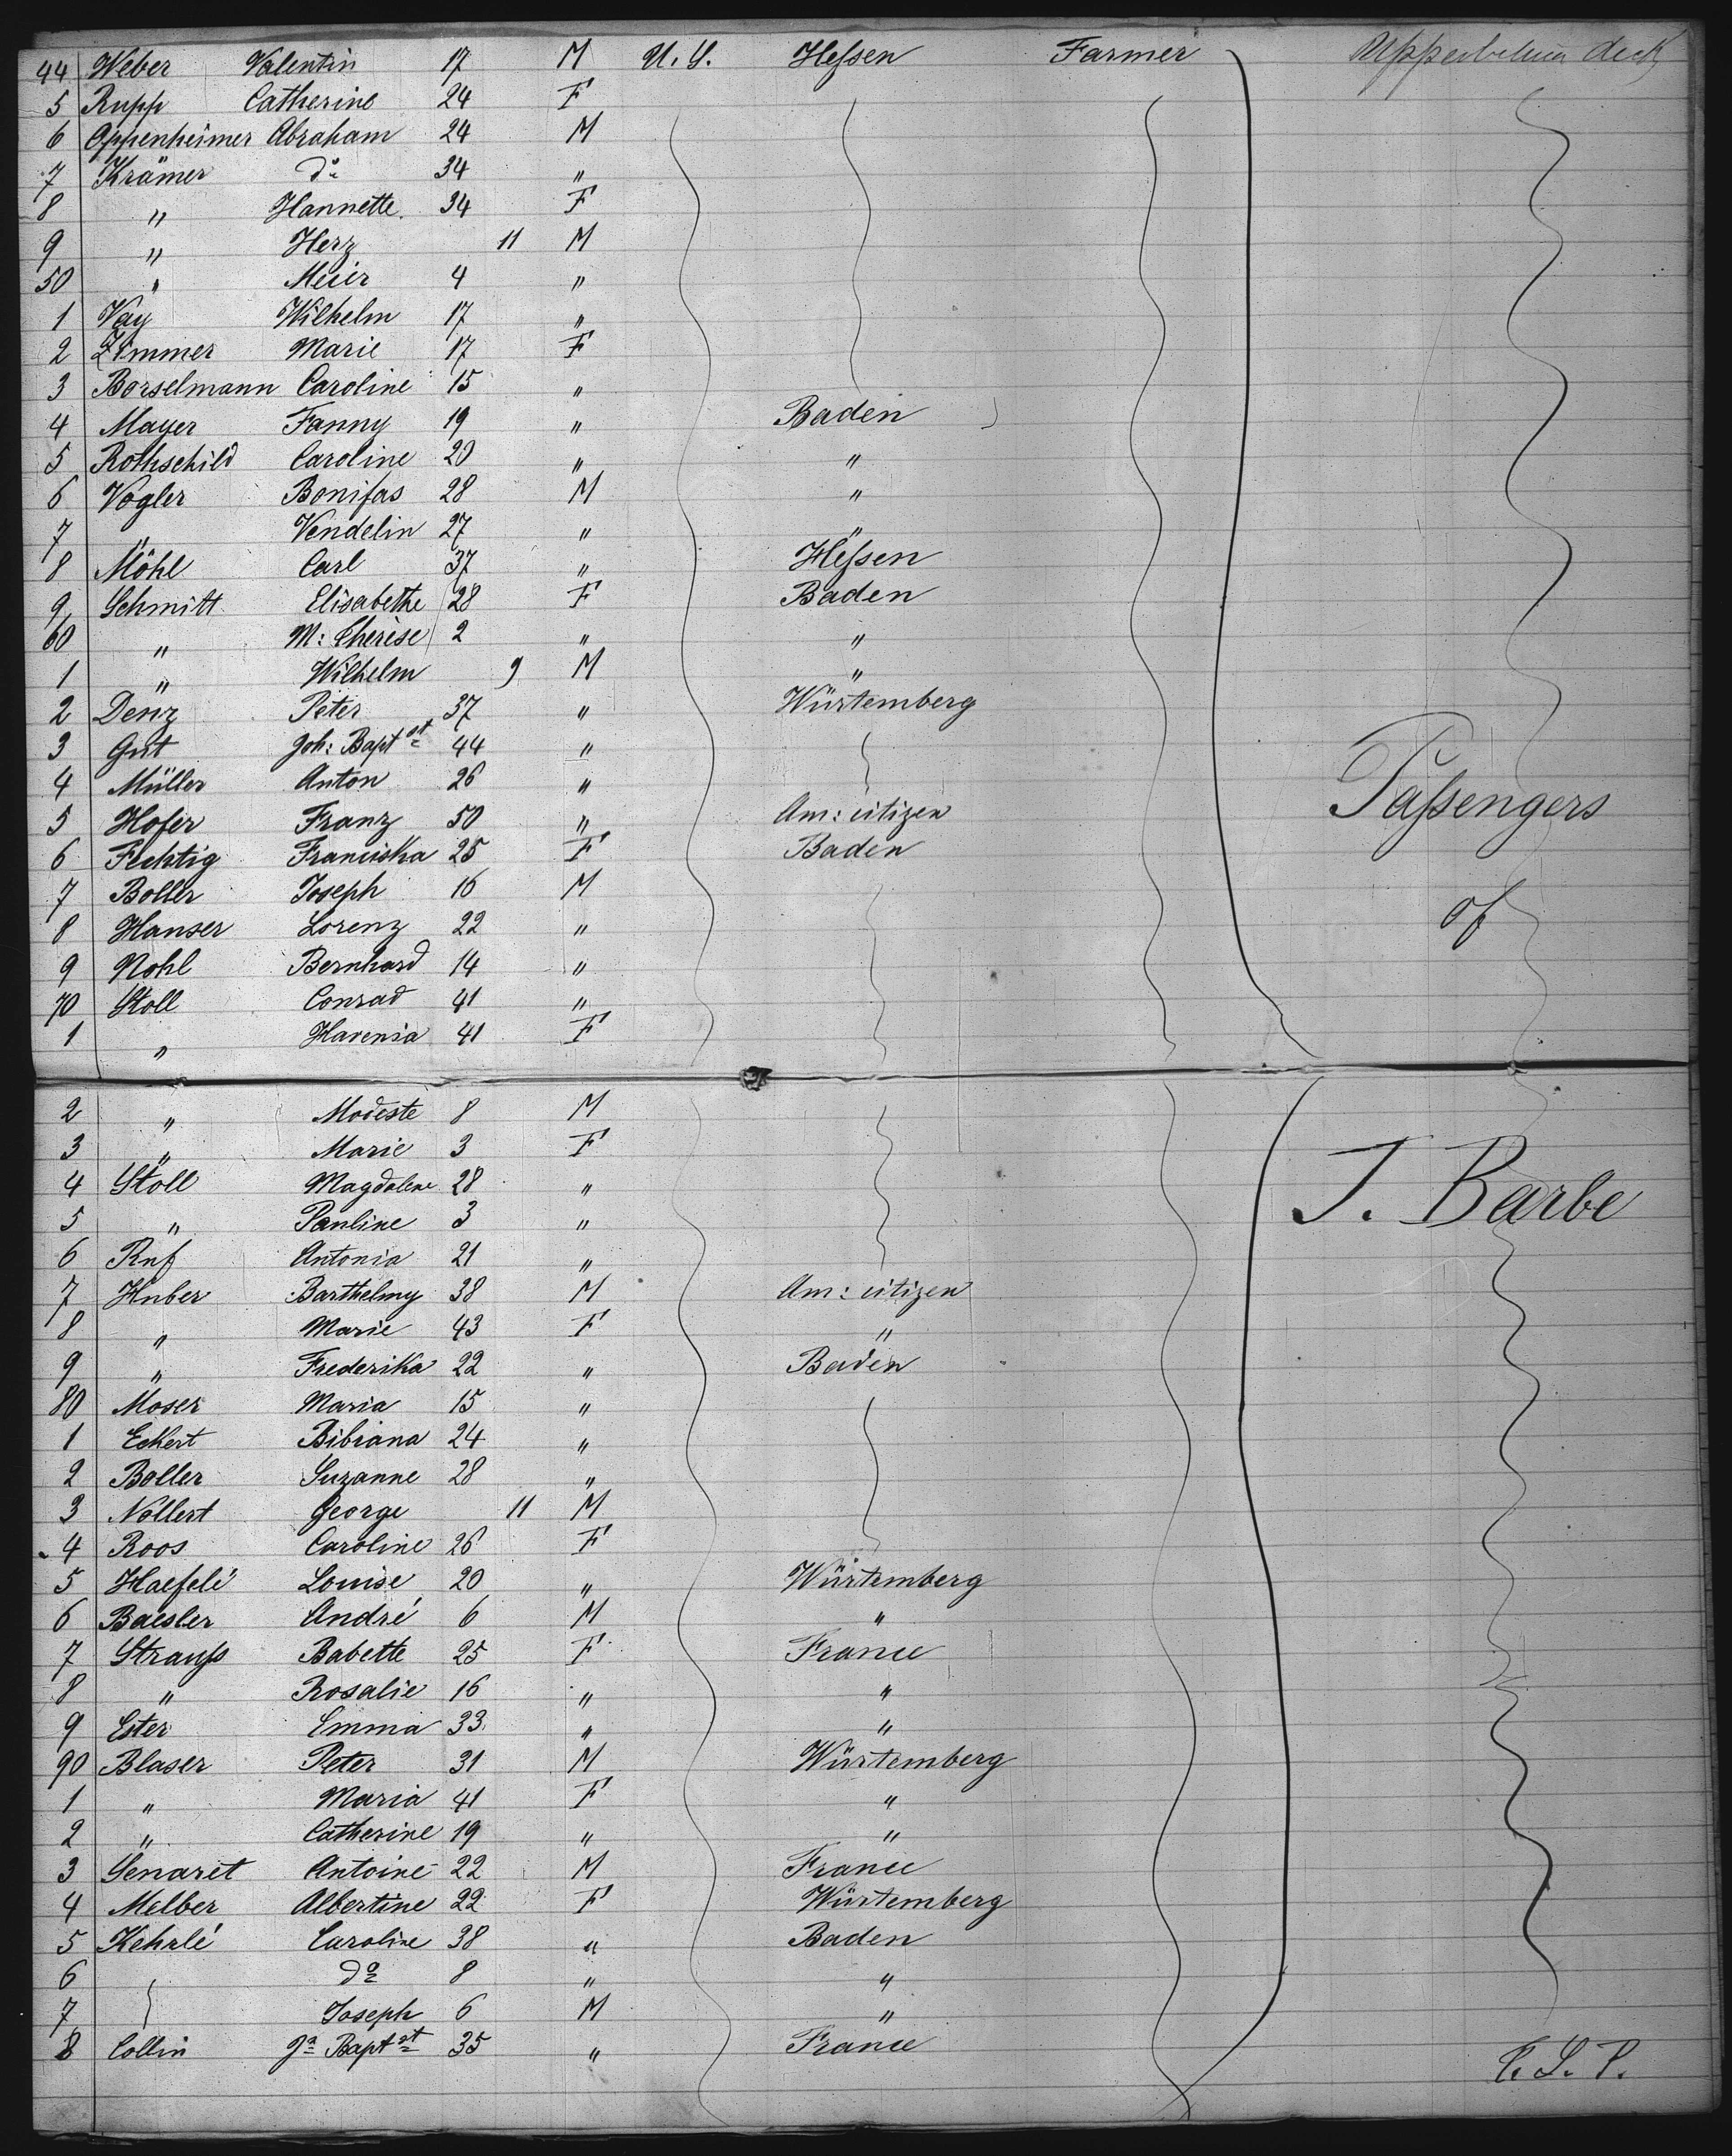 44 Weber Valentin 17 M U.S. Heſsen Farmer Upperbetween deck
5 Rupp Catherine 24 F
6 Oppenheimer Abraham 24 M
7 Krämer do 34 "
8 " Hannette. 34 F
9 " Herz 11 M
50 " Meier 4 "
1 Vay Wilhelm 17 "
2 Zimmer Marie 17 F
3 Borselmann Caroline 15 "
4 Mayer Fanny 19 " Baden
5 Rothschild Caroline 20 " "
6 Vogler Bonifas 28 M "
7 " Vendelin 27 " "
8 Möhl Carl 37 " Heſsen
9 Schmitt Elisabethe 28 F Baden
60 " M: Therèse 2 " "
1 " Wilhelm 9 M "
2 Denz Peter 37 " Würtemberg
3 Gut Joh: Baptst 44 "
4 Müller Anton 26 "
5 Hofer Franz 50 " Am: citizen
6 Fechtig Franciska 25 F Baden
7 Boller Joseph 16 M
8 Hanser Lorenz 22 "
9 Nohl Bernhard 14 "
70 Stoll Conrad 41 "
1 " Harenia 41 F
Paſsengers
of
J. Barbe
2 " Modeste 8 M
3 " Marie 3 F
4 Stoll Magdalene 28 "
5 " Pauline 3 "
6 Ruf Antonia 21 "
7 Huber Barthelmy 38 M Am: citizen
8 " Marie 43 F "
9 " Frederika 22 " Baden
80 Moser Maria 15 "
1 Eckert Bibiana 24 "
2 Boller Suzanne 28 "
3 Nollert George 11 M
4 Roos Caroline 26 F
5 Haefelé Louise 20 " Würtemberg
6 Baesler André 6 M "
7 Strauſs Babette 25 F France
8 " Rosalie 16 " "
9 Ester Emma 33 " "
90 Blaser Peter 31 M Würtemberg
1 " Maria 41 F "
2 " Catherine 19 " "
3 Senaret Antoine 22 M France
4 Melber Albertine 22 F Würtemberg
5 Kehrlé Caroline 38 " Baden
6 do 8 " "
7 Joseph 6 M "
8 Collin Jn Baptst 35 " France